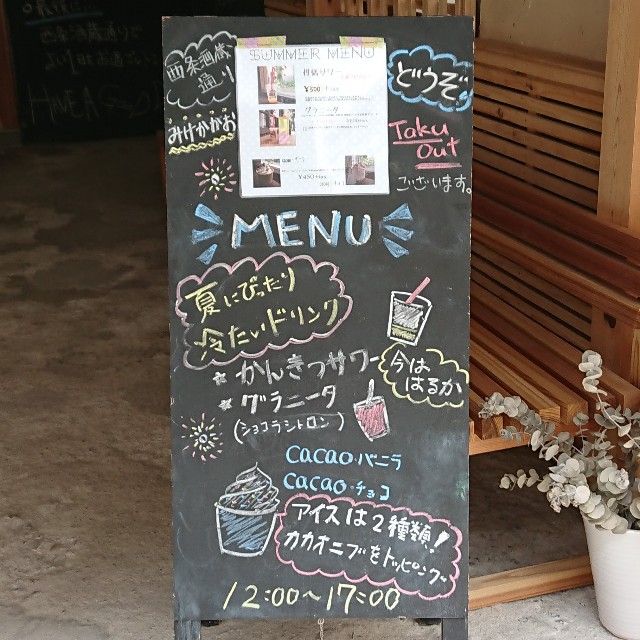 西条酒蔵
通り
みけかがお
SUMMER MENU
柑橘サワー
¥500
グラニータ
¥450
どうぞ
Taku
Out
ございます。
MENU
夏にぴったり
冷たいドリンク
かんきつサワー
今は
はるか
グラニータ
(ショコラシトロン)
cacao・バニラ
cacao・チョコ
アイスは2種類!
カカオニブをトッピング
12:00〜17:00